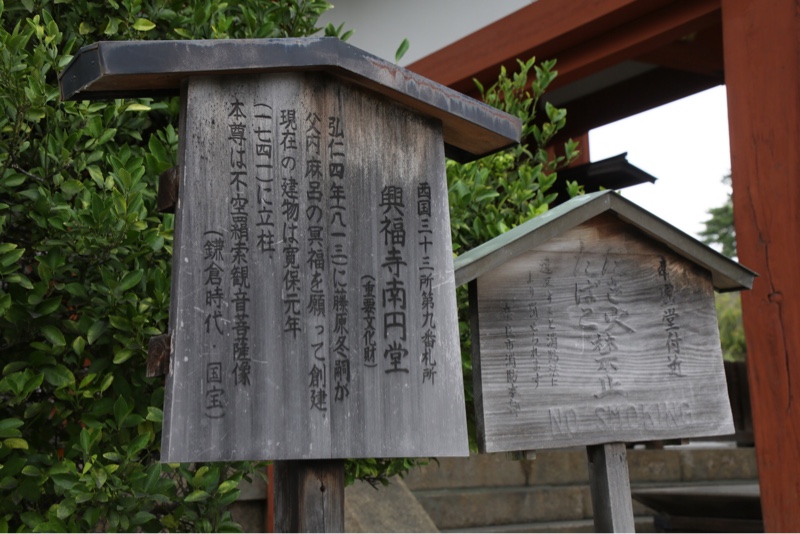 西国三十三所第九番札所
興福寺南円堂
(重要文化財)
弘仁四年(八一三)に藤原冬嗣が
父内麻呂の冥福を願って創建
現在の建物は寛保元年
(一七四一)に立柱.
本尊は不空羂索観音菩薩像
(鎌倉時代・国宝)
堂付近
たき火禁止
たばこ
NO-SMOKING